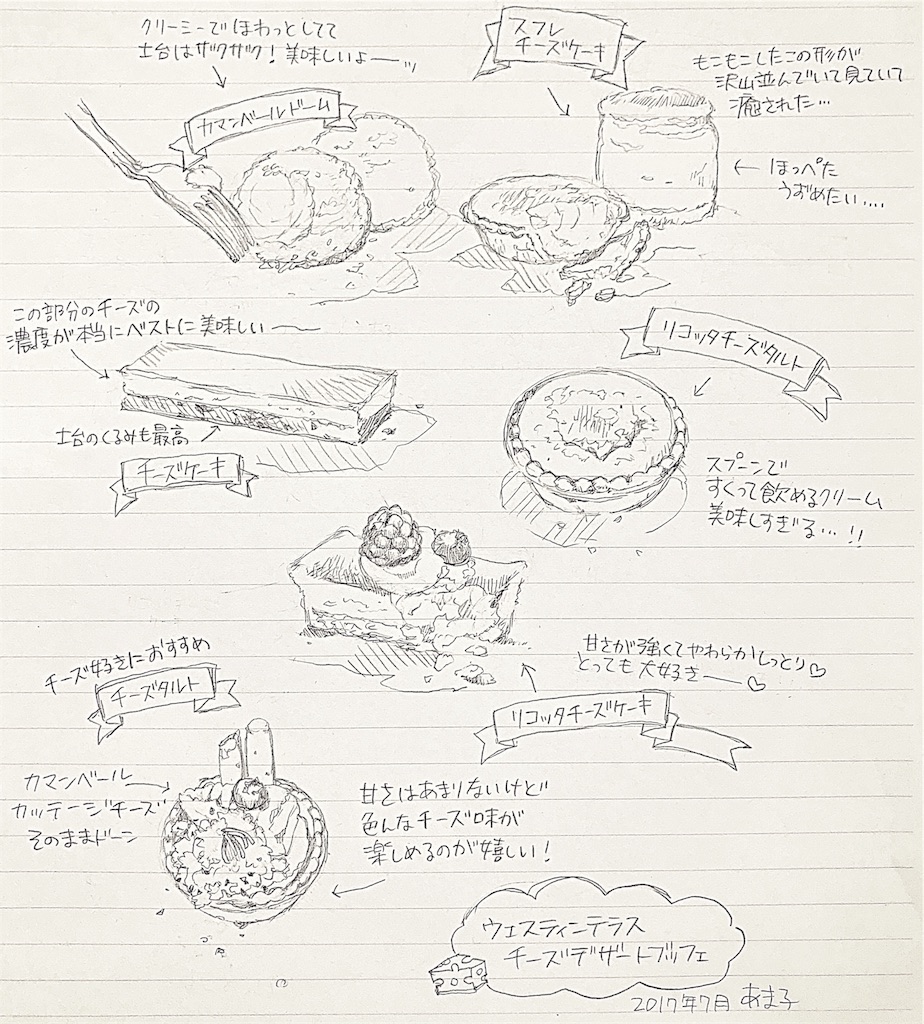 クリーミーでほわっとしてて
土台はザクザク!美味しいよーッ
カマンベールドーム
スフレ
チーズケーキ
もこもこしたこの形が
沢山並んでいて見ていて
癒された…
ほっぺた
うずめたい....
この部分のチーズの
濃度が本当にベストに美味しい――
土台のくるみも最高
チーズケーキ
リコッタチーズタルト
スプーンで
すくって飲めるクリーム
美味しすぎる...!!
甘さが強くてやわらかしっとり♡
とっても大好き――♡
リコッタチーズケーキ
チーズ好きにおすすめ
チーズタルト
カマンベール
カッテージチーズ
そのままドーン
甘さはあまりないけど
色んなチーズ味が
楽しめるのが嬉しい!
ウェスティンテラス
チーズデザートブッフェ
2017年7月 あま子